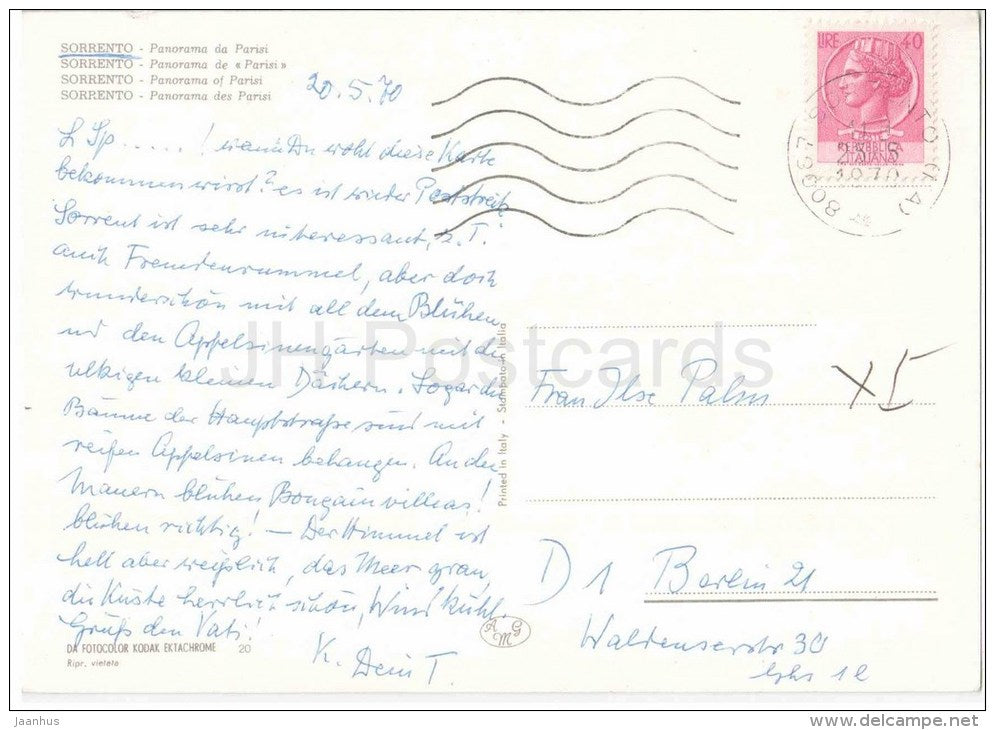 SORRENTO - Panorama da Parisi
SORRENTO - Panorama de « Parisi »
SORRENTO - Panorama of Parisi
SORRENTO - Panorama des Parisi
20.5.70
L Sp.....! wann Du wohl diese Karte
bekommen wirst? es ist wieder Poststreik
Sorrent ist sehr interessant, z.T.
auch Fremdenrummel, aber doch
wunderschön mit all dem Blühen
und den Apfelsinengärten mit den
ulkigen kleinen Dächern. Sogar die
Bäume der Hauptstraße sind mit
reifen Apfelsinen behangen. An den
Mauern blühen Bougainvilleas!
blühen richtig! - Der Himmel ist
hell aber weißlich, das Meer grau,
die Küste herrlich schön, Wind kühl.
Gruß den Vati!
K. Dein T.
DA FOTOCOLOR KODAK EKTACHROME 20
Ripr. vietata
Printed in Italy - Stampato in Italia
AGM
LIRE 40
REPVBBLICA
ITALIANA
80067 SO TO (NA)
1970
Frau Ilse Palm
XI
D 1 Berlin 21
Waldenserstr 30
Ghs 1l
JH Postcards
jaanhus
www.delcampe.net